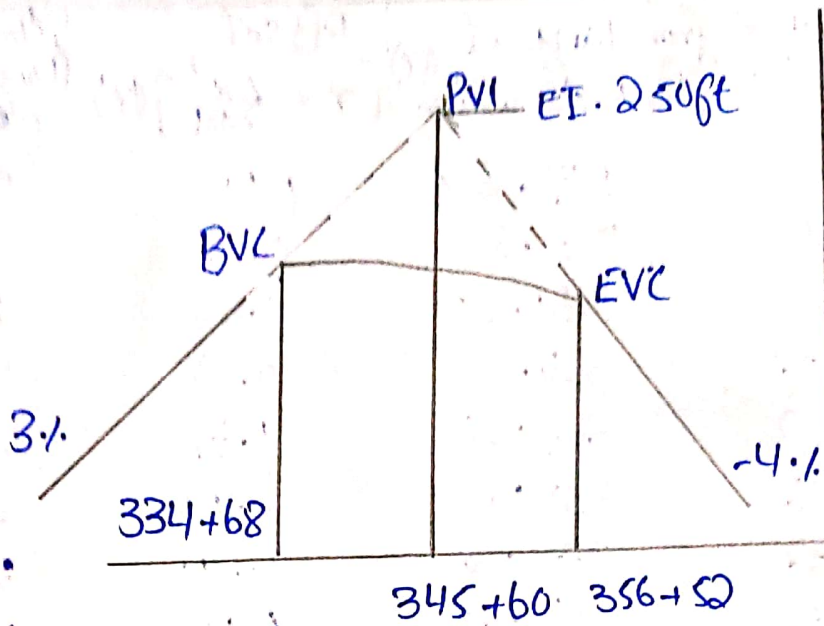 PVI EI. 250ft
BVC
EVC
3%
-4%
334+68
345+60 356+52